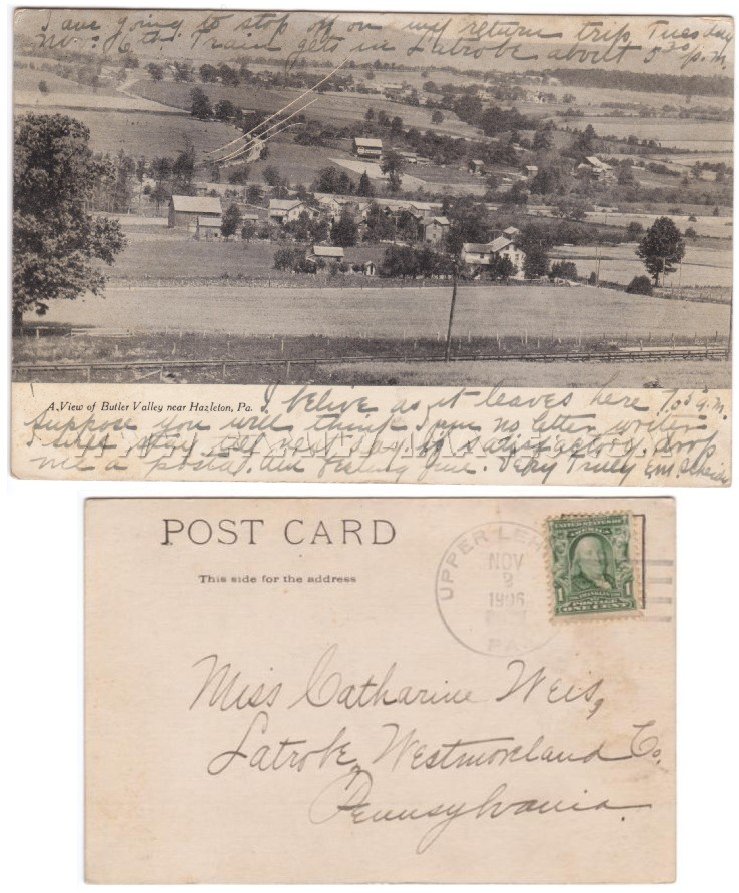 I ave going to stop off on my return trip, Tuesday
Nv. 6th. Train gets in Latrobe about 5 30 p.m.
A View of Butler Valley near Hazleton, Pa.
I belive as it leaves here 7 a.m.
Suppose you will think I am no letter writer
I will stay til next day if satisfactory drop
me a postal. Am feeling fine. Very Truly
POST CARD
This side for the address
UPPER LEH
NOV
1906
PA.
UNITED STATES OF
AMERICA
1 FRANKLIN 1
POSTAGE
ONE CENT
Miss Catharine Weis,
Latrobe, Westmorland Co.
Pennsylvania.